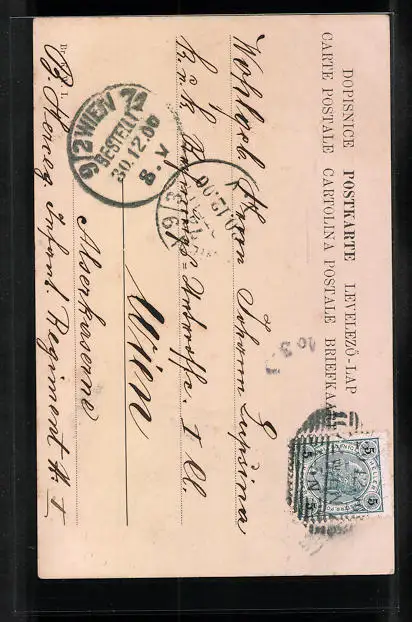 DOPISNICE POSTKARTE LEVELEZŐ-LAP
CARTE POSTALE CARTOLINA POSTALE BRIEFKAART
5 5
HELLER
Wohlgeb. Herrn Johann Lupsina
K. u. k. Rechnungs-Unteroffz. I Cl.
Wien
Alserkaserne
B. Herceg. Infant. Regiment № 1
9/2 WIEN 72
BESTELLT
30.12.00
8. V